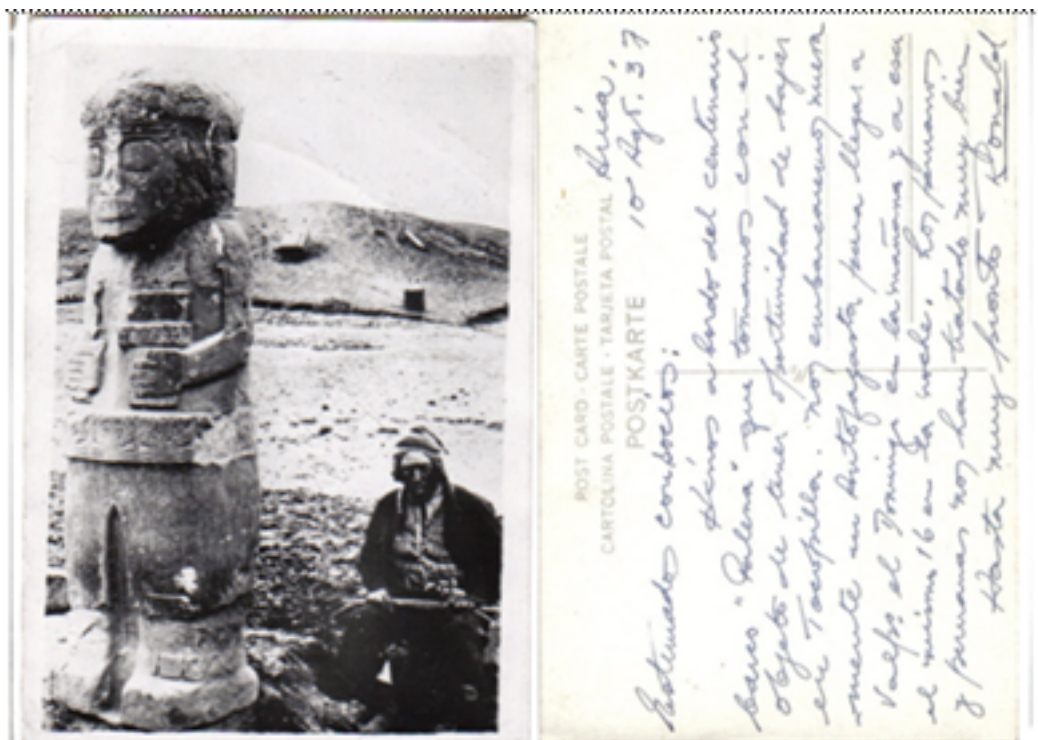 POST CARD · CARTE POSTALE
CARTOLINA POSTALE · TARJETA POSTAL
POSTKARTE
Arica,
10 Agt. 37
Estimados consocios:
Henos a bordo del centenario
barco "Palena" que tomamos con el
objeto de tener oportunidad de bajar
en Tocopilla. nos embarcaremos nueva
mente en Antofagasta para llegar a
Valpo el Domingo en la mañana y a
el mismo 16 en la noche. Los peruanos
y peruanas nos han tratado muy bien
Hasta muy pronto - Donald